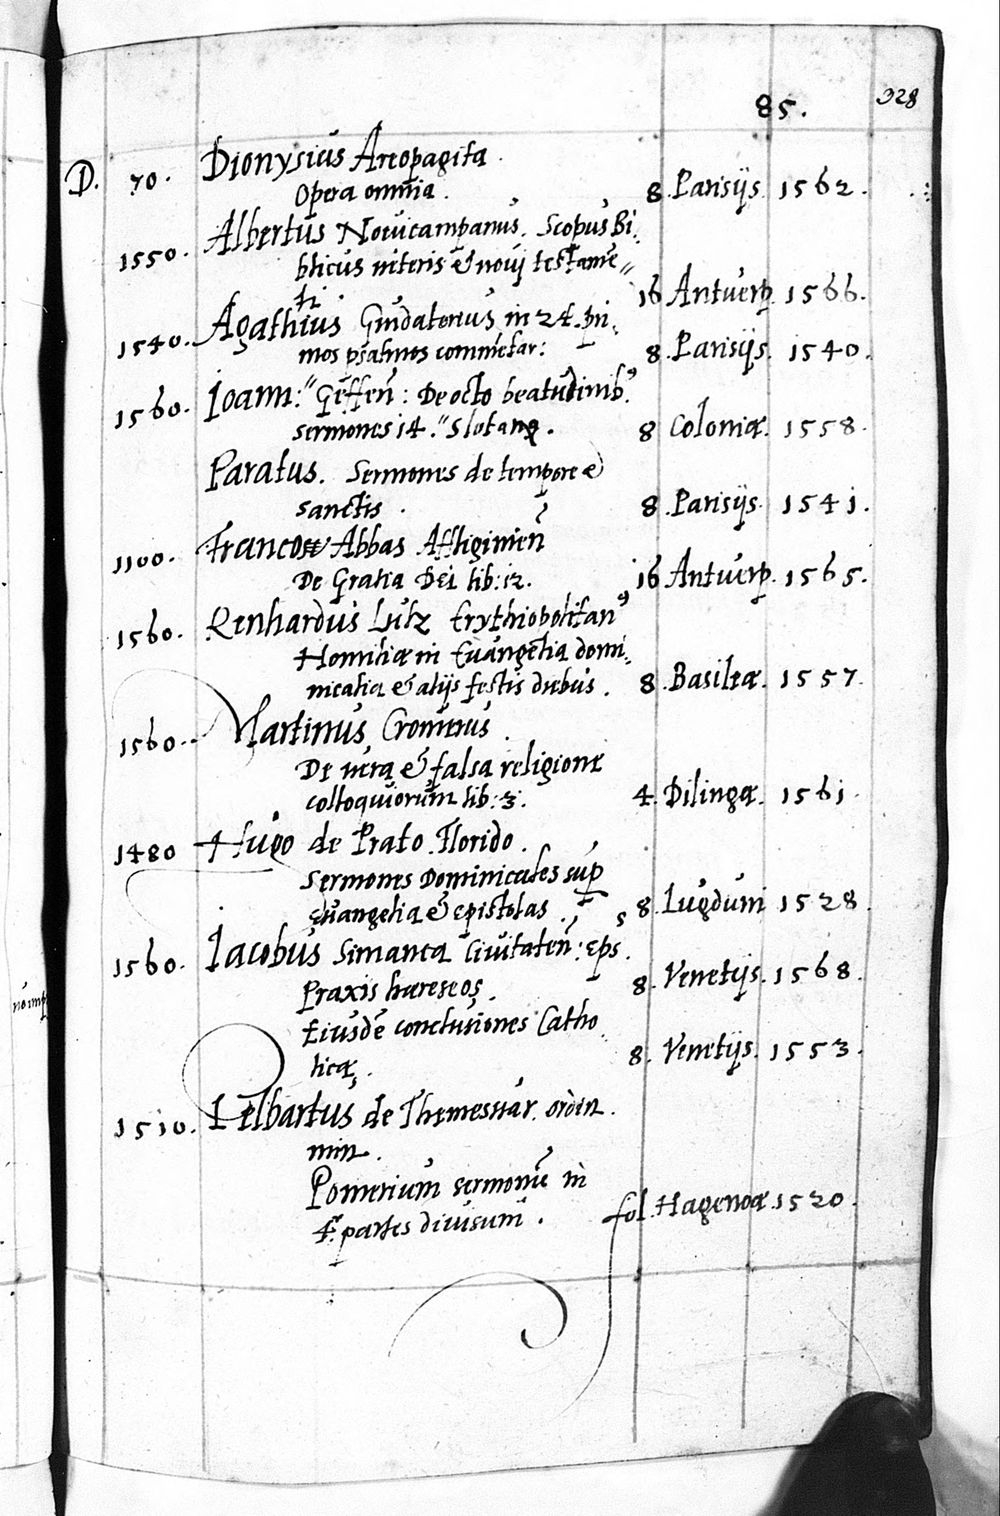 85.
328
D. 70. Dionysius Areopagita.
Opera omnia. 8. Parisijs. 1562.
1550. Albertus Novicampanus. Scopus Bi,
blicus veteris & novi testame,,
ti. 16 Antverp. 1566.
1540. Agathius Guidacerius in 24. pri,
mos psalmos commetar: 8. Parisijs. 1540.
1560. Joann: Geffen: De octo beatudinib9.
sermones 14. Slotang. 8 Coloniæ. 1558.
Paratus. Sermones de tempore e
sanctis. 8. Parisijs. 1541.
1100. Franco Abbas Affliginien
De Gratia Dei lib: 12. 16 Antverp. 1565.
1560. Renhardus Lutz Erythiopolitan9
Homiliæ in Evangelia domi,
nicalia & alijs festis diebus. 8. Basileæ. 1557.
1560. Martinus Cromerus.
De vera & falsa religione
colloquiorum lib: 3. 4. Dilingæ. 1561.
1480 Hugo de Prato Florido.
Sermones Dominicales sup
evangelia & epistolas. 8. Lugduni 1528.
1560. Jacobus Simanca Civitaten: eps.
Praxis hæreseos. 8. Venetijs. 1568.
Eiusdē conclusiones Catho
licæ. 8. Venetijs. 1553.
1510. Pelbartus de Themesvar. ordin.
min.
Pomerium sermonū in
4. partes divisum. fol. Hagenoæ. 1520.